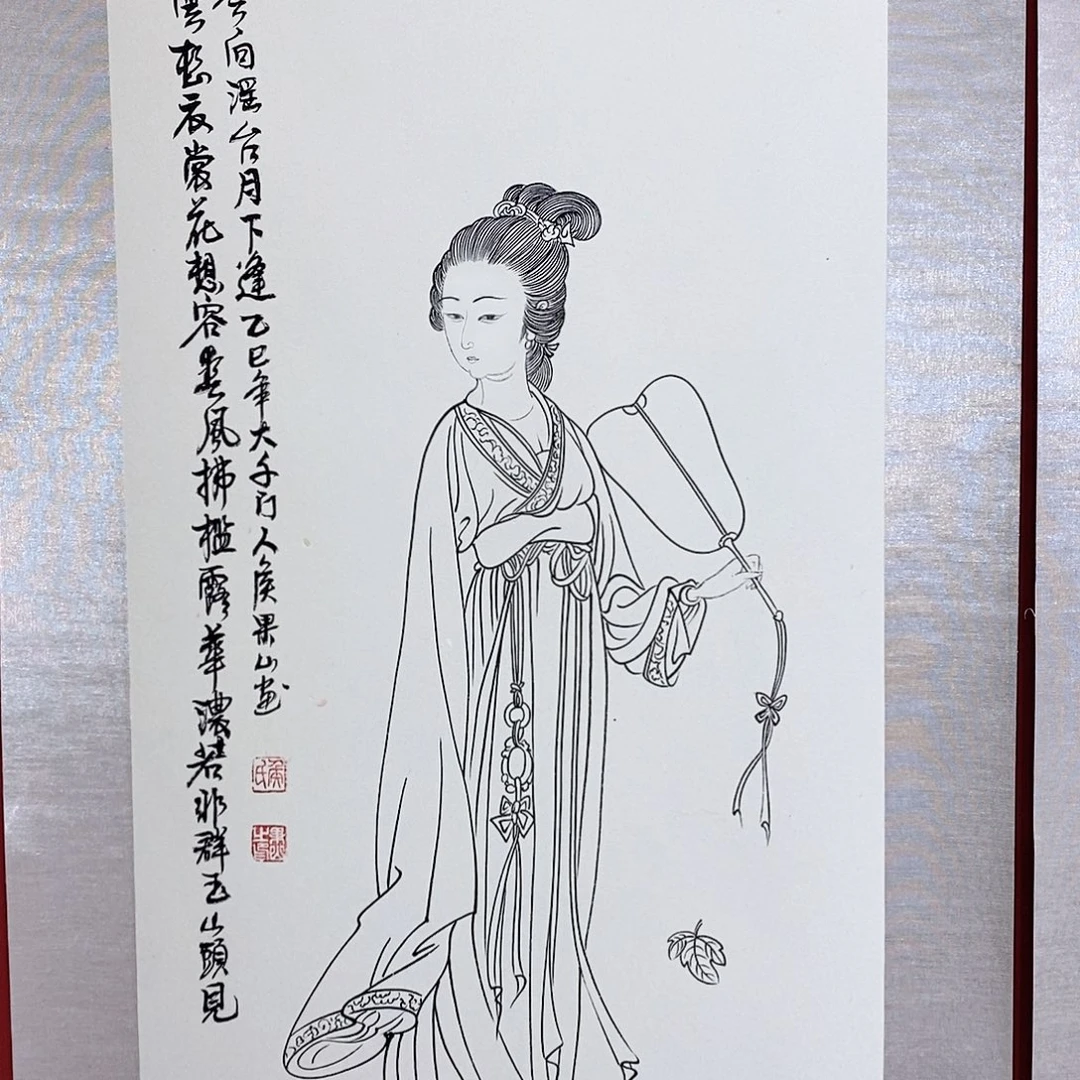 雲想衣裳花想容春風拂檻露華濃若非群玉山頭見
会向瑶台月下逢乙巳年大千门人侯果山画
侯氏